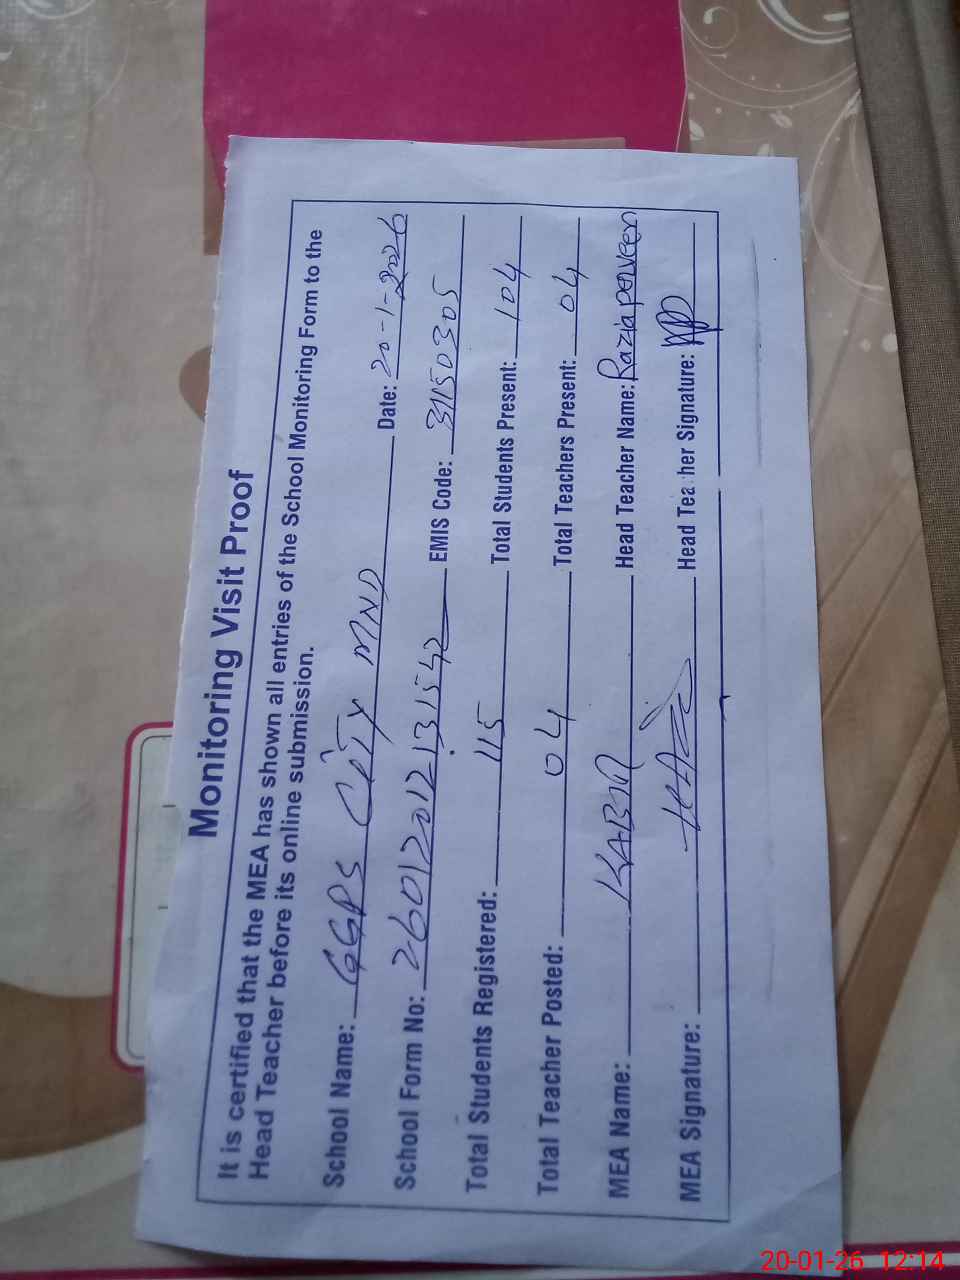 Monitoring Visit Proof
It is certified that the MEA has shown all entries of the School Monitoring Form to the
Head Teacher before its online submission.
School Name: GGPS City MND Date: 20-1-2026
School Form No: 26012012131542 EMIS Code: 31150305
Total Students Registered: 115 Total Students Present: 104
Total Teacher Posted: 04 Total Teachers Present: 04
MEA Name: KABIR Head Teacher Name: Razia perveen
MEA Signature: Head Teacher Signature:
20-01-26 12:14